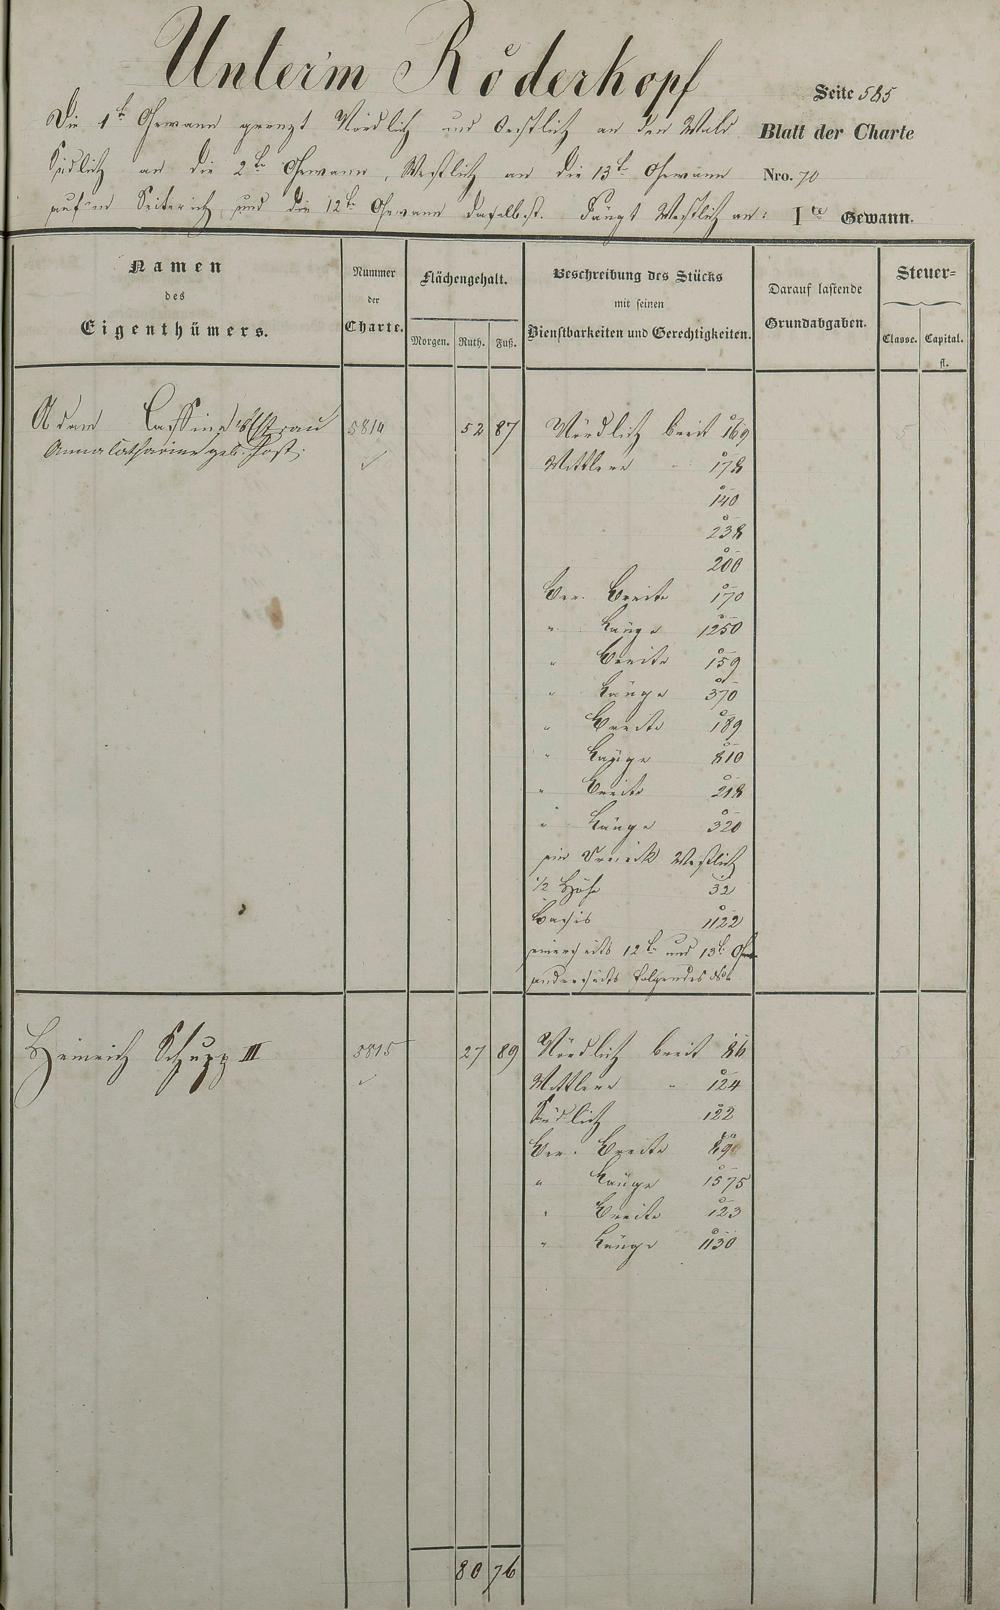 Unter'm Röderkopf
Seite 585
Die 1te Gewann grenzt Nördlich und Oestlich an den Wald
Blatt der Charte
Südlich an die 2te Gewann, Westlich an die 13te Gewann
Nro. 70
auf'm Seiterich und die 12te Gewann daselbst. Fängt Westlich an:
Ite Gewann.
Namen
des
Eigenthümers.
Nummer
der
Charte.
Flächengehalt.
Morgen. Ruth. Fuß.
Beschreibung des Stücks
mit seinen
Dienstbarkeiten und Gerechtigkeiten.
Darauf lastende
Grundabgaben.
Steuer=
Classe. Capital.
fl.
Adam 5814 52 87 Nördlich breit 169
Anna Catharine geb. Host.
Mittlere " 178
140
238
200
Ver. Breite 170
" Länge 1250
" Breite 159
" Länge 370
" Breite 189
" Länge 810
" Breite 218
" Länge 320
ein Dreieck Westlich
1/2 Höhe 32
Basis 1122
einerseits 12te und 13te Gew.
anderseits folgendes
Heinrich Schupp III 5815 27 89 Nördlich breit 86
Mittlere " 124
Südlich 122
Ver. Breite 890
" Länge 1575
" Breite 123
" Länge 1130
80 76